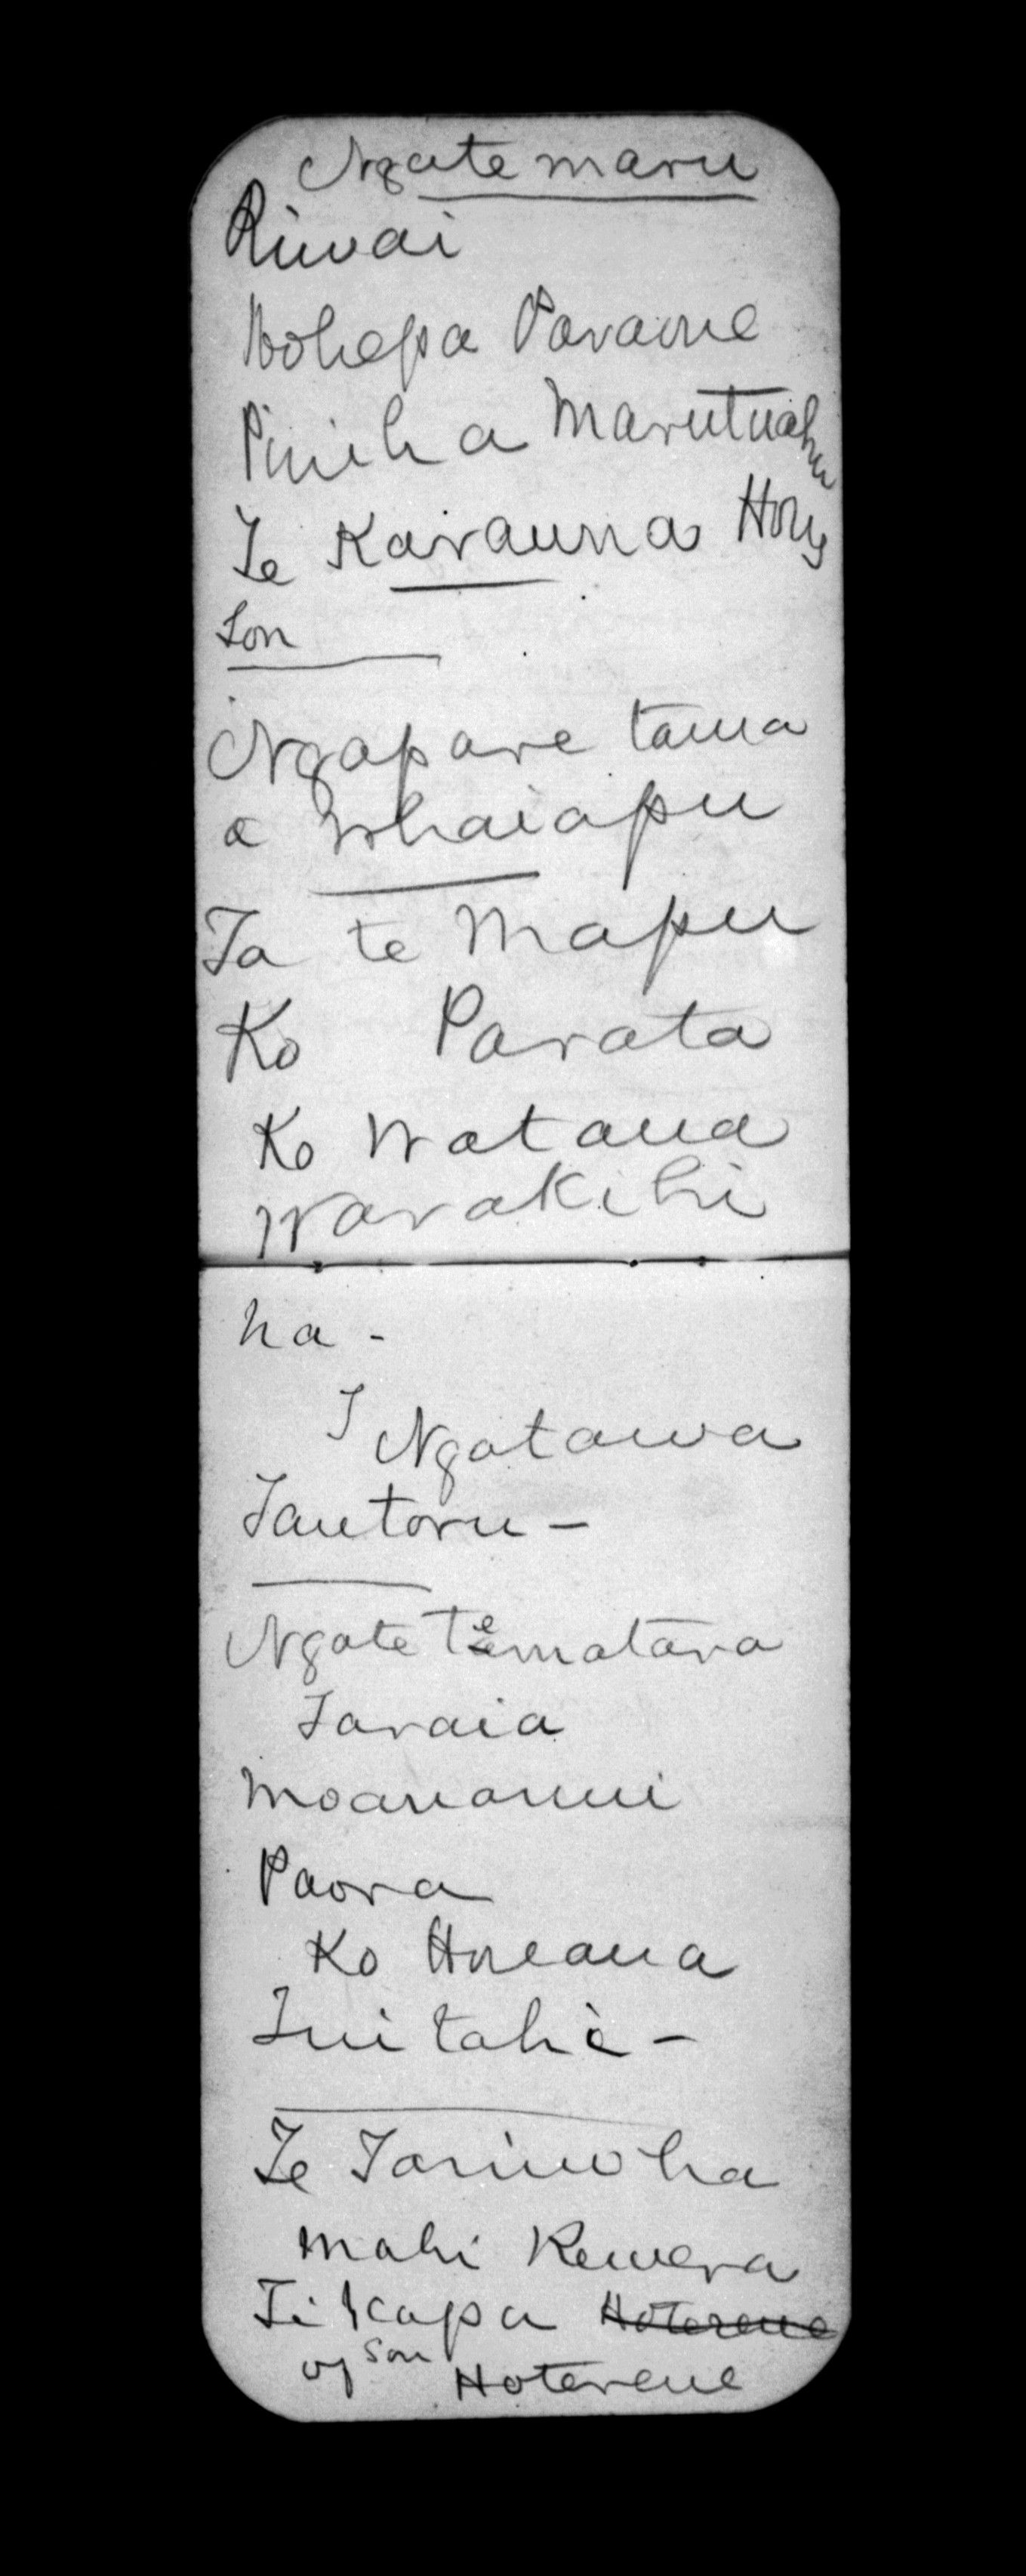 Ngate maru
Riwai
Hohepa Paraone
Piniha Marutuahu
Te Karauna Hou
Son
Ngapare tama
a Whaiapu
Ta te Mapu
Ko Parata
Ko Watana
Warakihi
ha -
I Ngatawa
Tautoru -
Ngate Tematara
Taraia
Moananui
Paora
Ko Hoeana
Tuitahi -
Te Taniwha
Mahi Rewera
Ti Kapa Hoterene
of son Hoterene